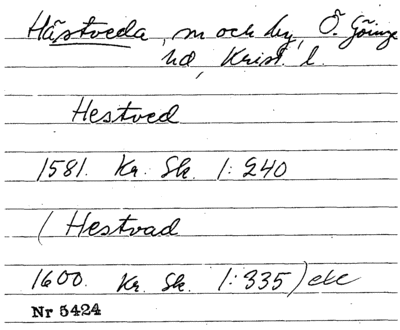 Hästveda, sn och by, Ö. Göinge
hd, Krist. l.
Hestved
1581. Kr. Sk. 1: 240
( Hestvad
1600. Kr. Sk. 1: 335) etc
Nr 5424